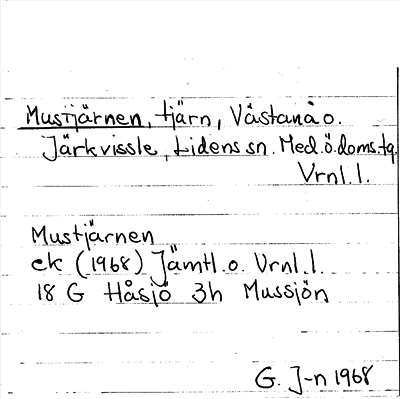 Mustjärnen, tjärn, Västanå o.
Järkvissle, Lidens sn. Med. ö. doms. tg.
Vrnl. l.
Mustjärnen
ek (1968) Jämtl. o. Vrnl. l.
18 G Håsjö 3h Mussjön
G. J-n 1968